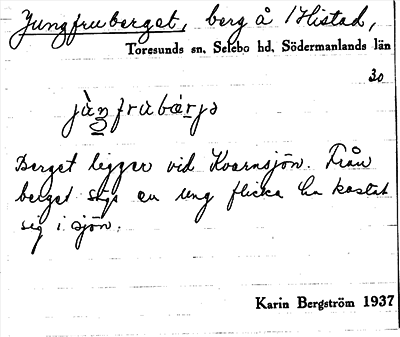 Jungfruberget, berg å Histad,
Toresunds sn. Selebo hd. Södermanlands län
30
Berget ligger vid Kvarnsjön. Från
berget sägs en ung flicka ha kastat
sig i sjön.
Karin Bergström 1937